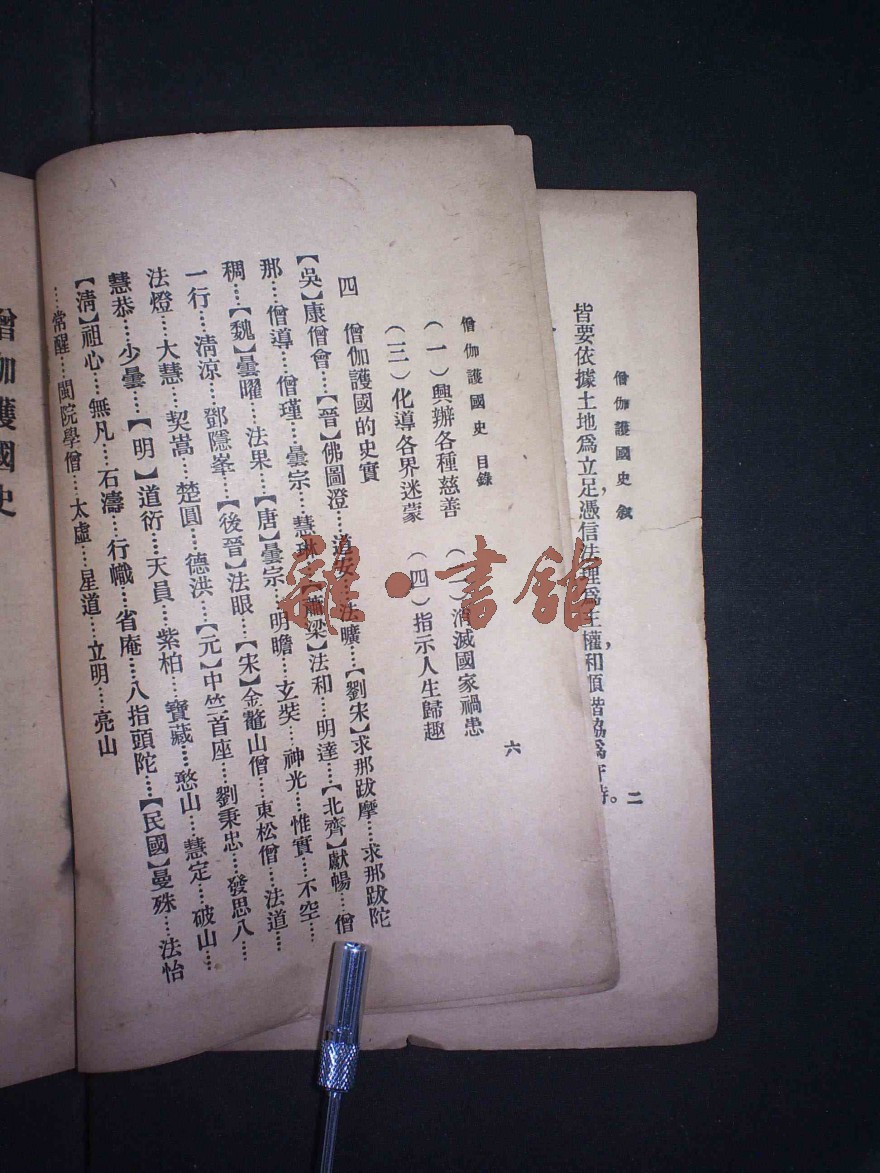 皆要依據土地為立足,憑信法理為主權,和順諧協為
僧伽護國史 敘
二
僧伽護國史 目錄
六
(一)興辦各種慈善 (二)消滅國家禍患
(三)化導各界迷蒙 (四)指示人生歸趣
四 僧伽護國的史實
【吳】康僧會……【晉】佛圖澄……道安……法曠……【劉宋】求那跋摩……求那跋陀
那……僧導……僧瑾……曇宗……慧琳……【蕭梁】法和……明達……【北齊】獻暢……僧
稠……【魏】曇曜……法果……【唐】曇宗……明瞻……玄奘……神光……惟實……不空……
一行……清涼……鄧隱峯……【後晉】法眼……【宋】金鼇山僧……東松僧……法道……
法燈……大慧……契嵩……楚圓……德洪……【元】中竺首座……劉秉忠……發思八……
慧恭……少曇……【明】道衍……天員……紫柏……寶藏……憨山……慧定……破山……
【清】祖心……無凡……石濤……行幟……省庵……八指頭陀……【民國】曼殊……法怡
……常醒……閩院學僧……太虛……星道……立明……亮山
僧伽護國史
雜·書館